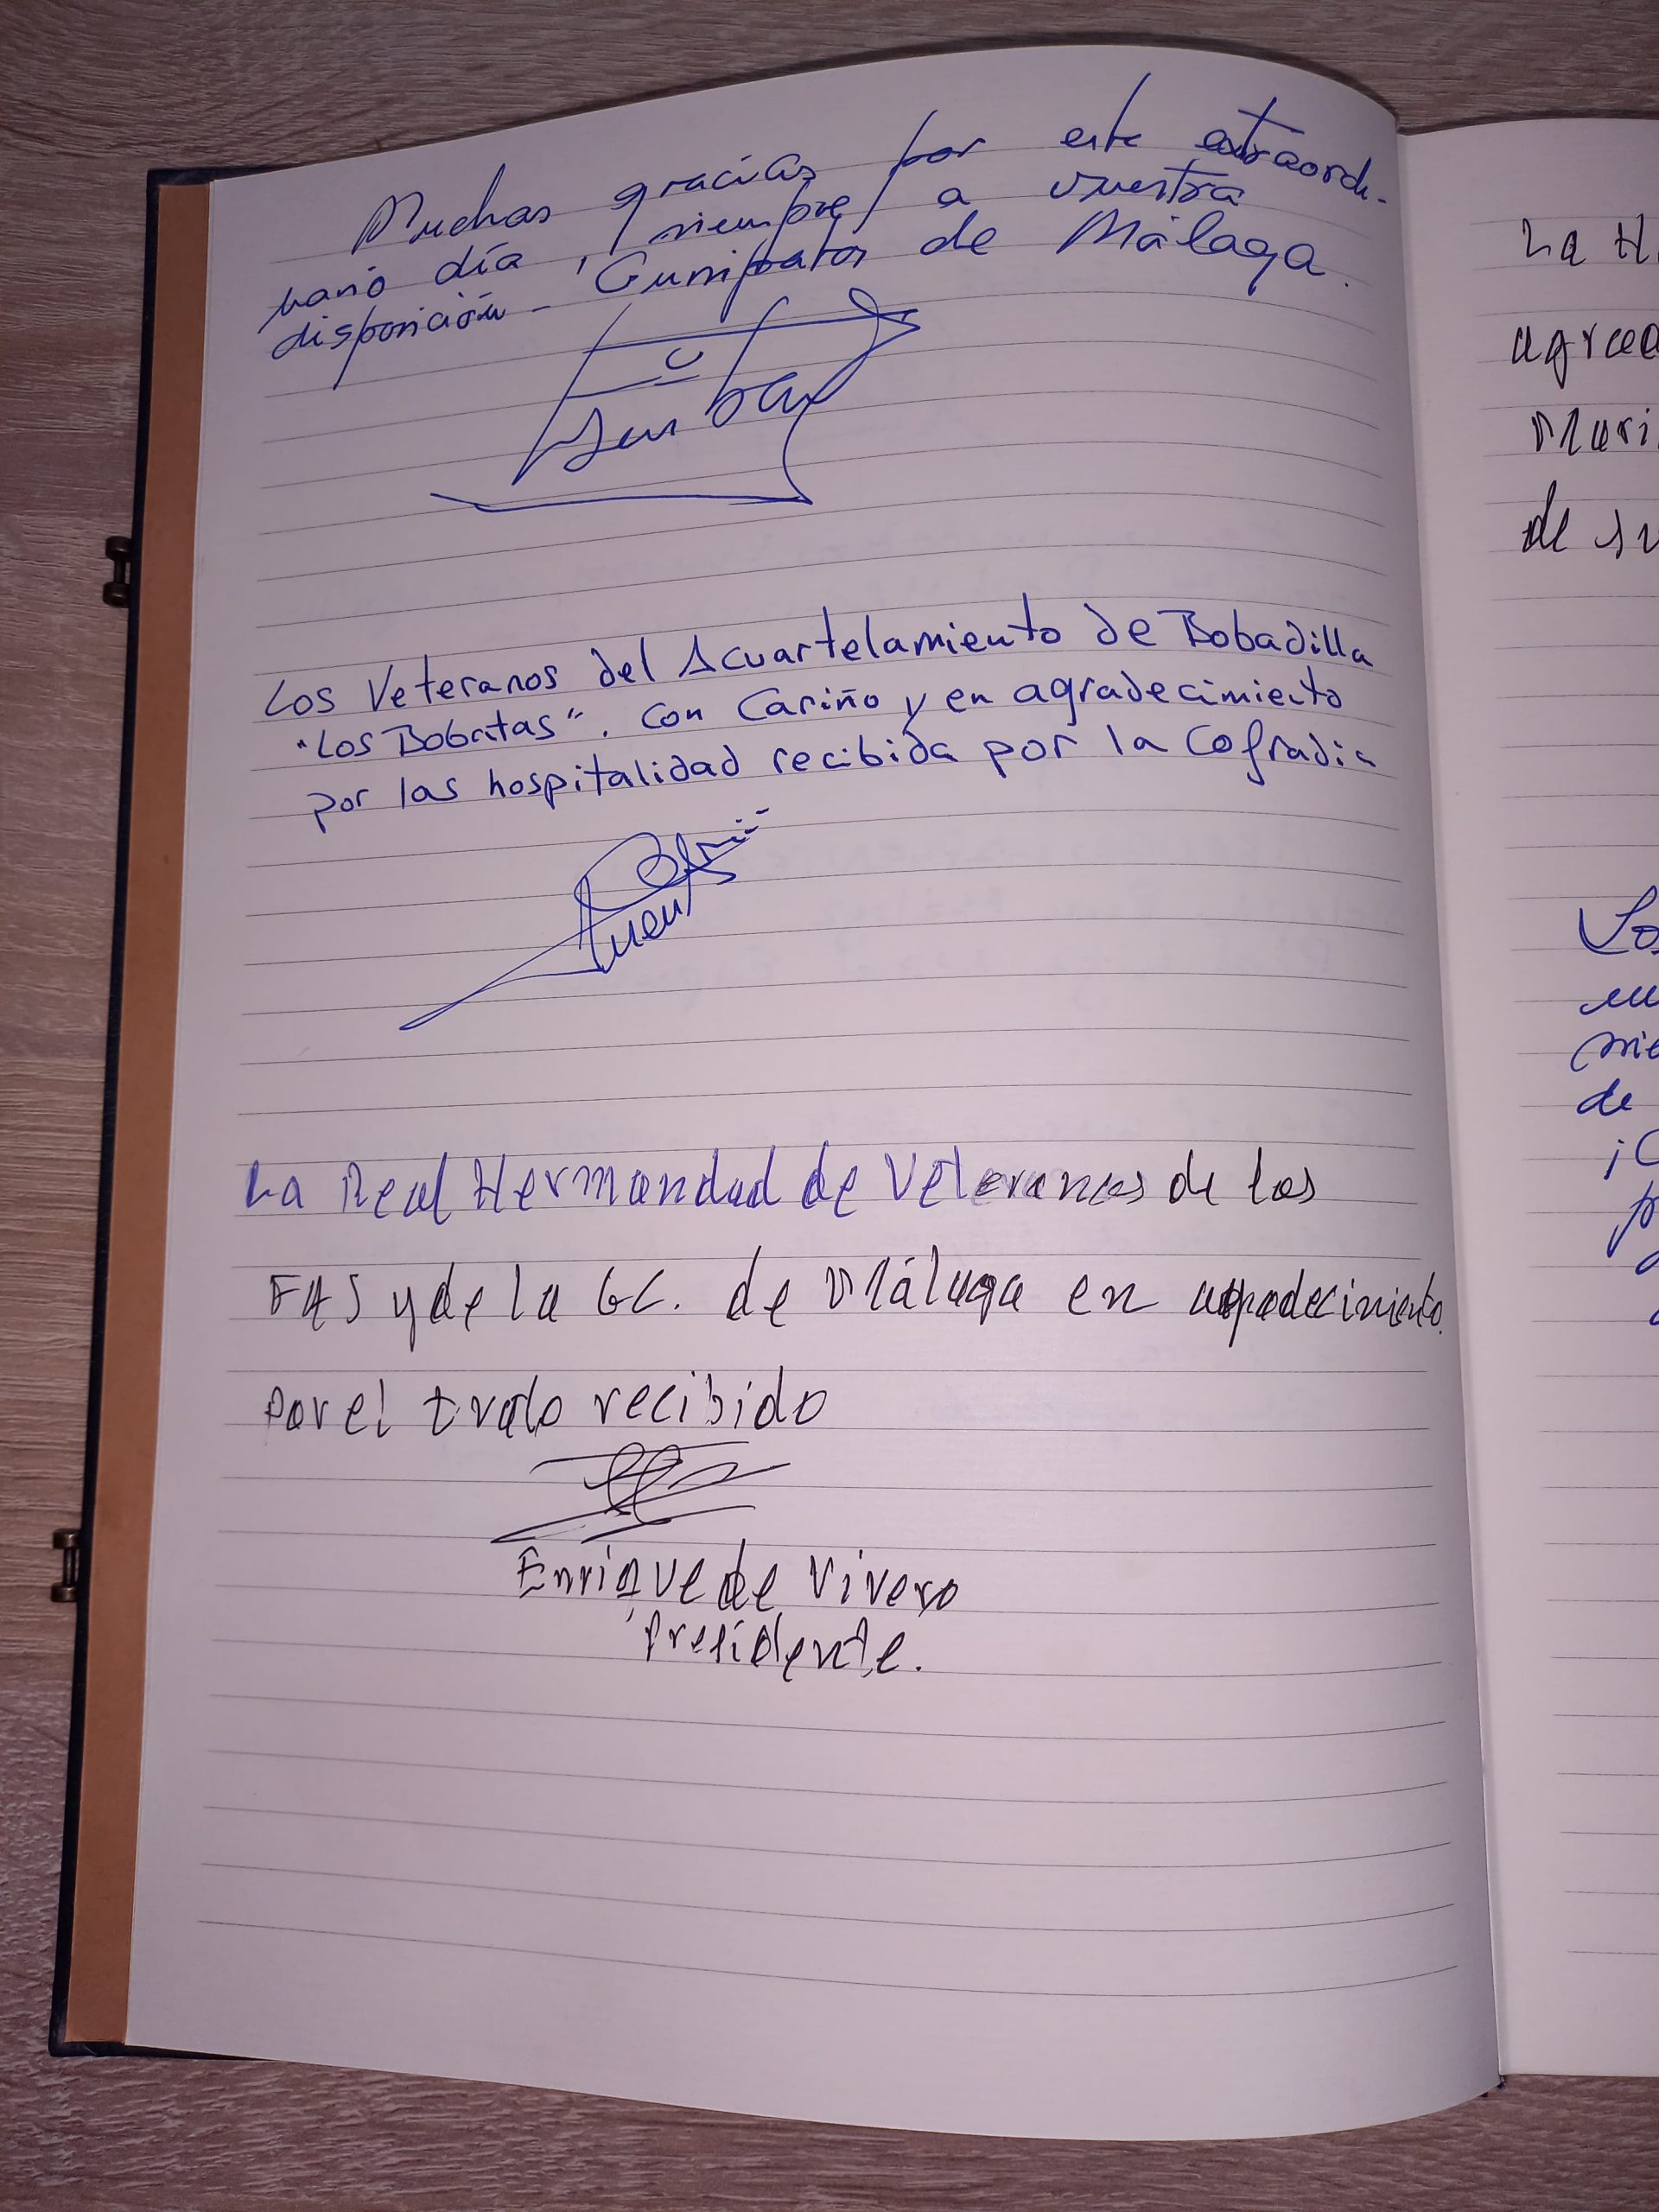 Muchas gracias por este extraordi-
nario día, siempre a vuestra
disposición - de Málaga.
Los Veteranos del Acuartelamiento de Bobadilla
"Los Bobatas". Con Cariño y en agradecimiento
por las hospitalidad recibida por la Cofradia
La Real Hermandad de Veteranos de las
FAS y de la GC. de Málaga en agradecimiento
por el trato recibido
Enrique de Vivero
Presidente.
La H
agrad
Mari
de su
de